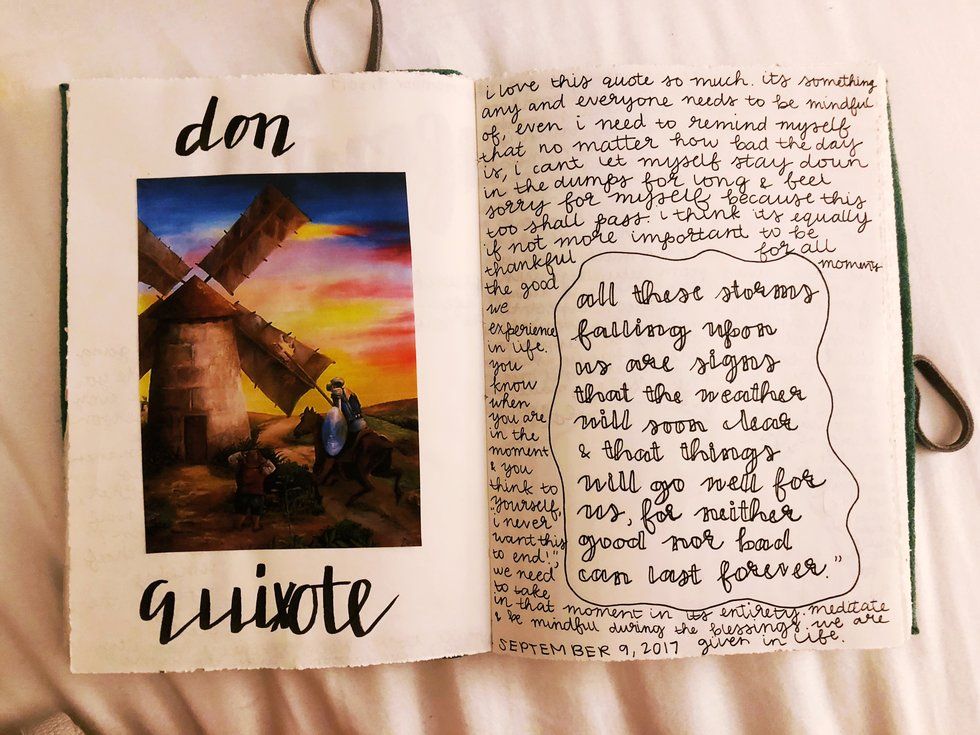 don
quixote
i love this quote so much. its something
any and everyone needs to be mindful
of, even i need to remind myself
that no matter how bad the day
is, i cant let myself stay down
in the dumps for long & feel
sorry for myself because this
too shall pass. i think its equally
if not more important to be
thankful for all
moments
the good
we
experience
in life.
you
know
when
you are
in the
moment
& you
think to
"yourself,
i never
want this
to end!",
we need
to take
in that moment in its entirety. meditate
& be mindful during the blessings we are
given in life.
all these storms
falling upon
us are signs
that the weather
will soon clear
& that things
will go well for
us, for neither
good nor bad
can last forever."
SEPTEMBER 9, 2017